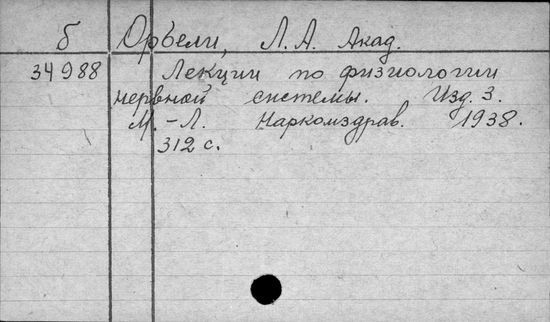 б Орбели, Л. А. Акад.
34988 Лекции по физиологии
нервной системы. Изд. 3.
М.-Л. Наркомздрав. 1938.
312 с.